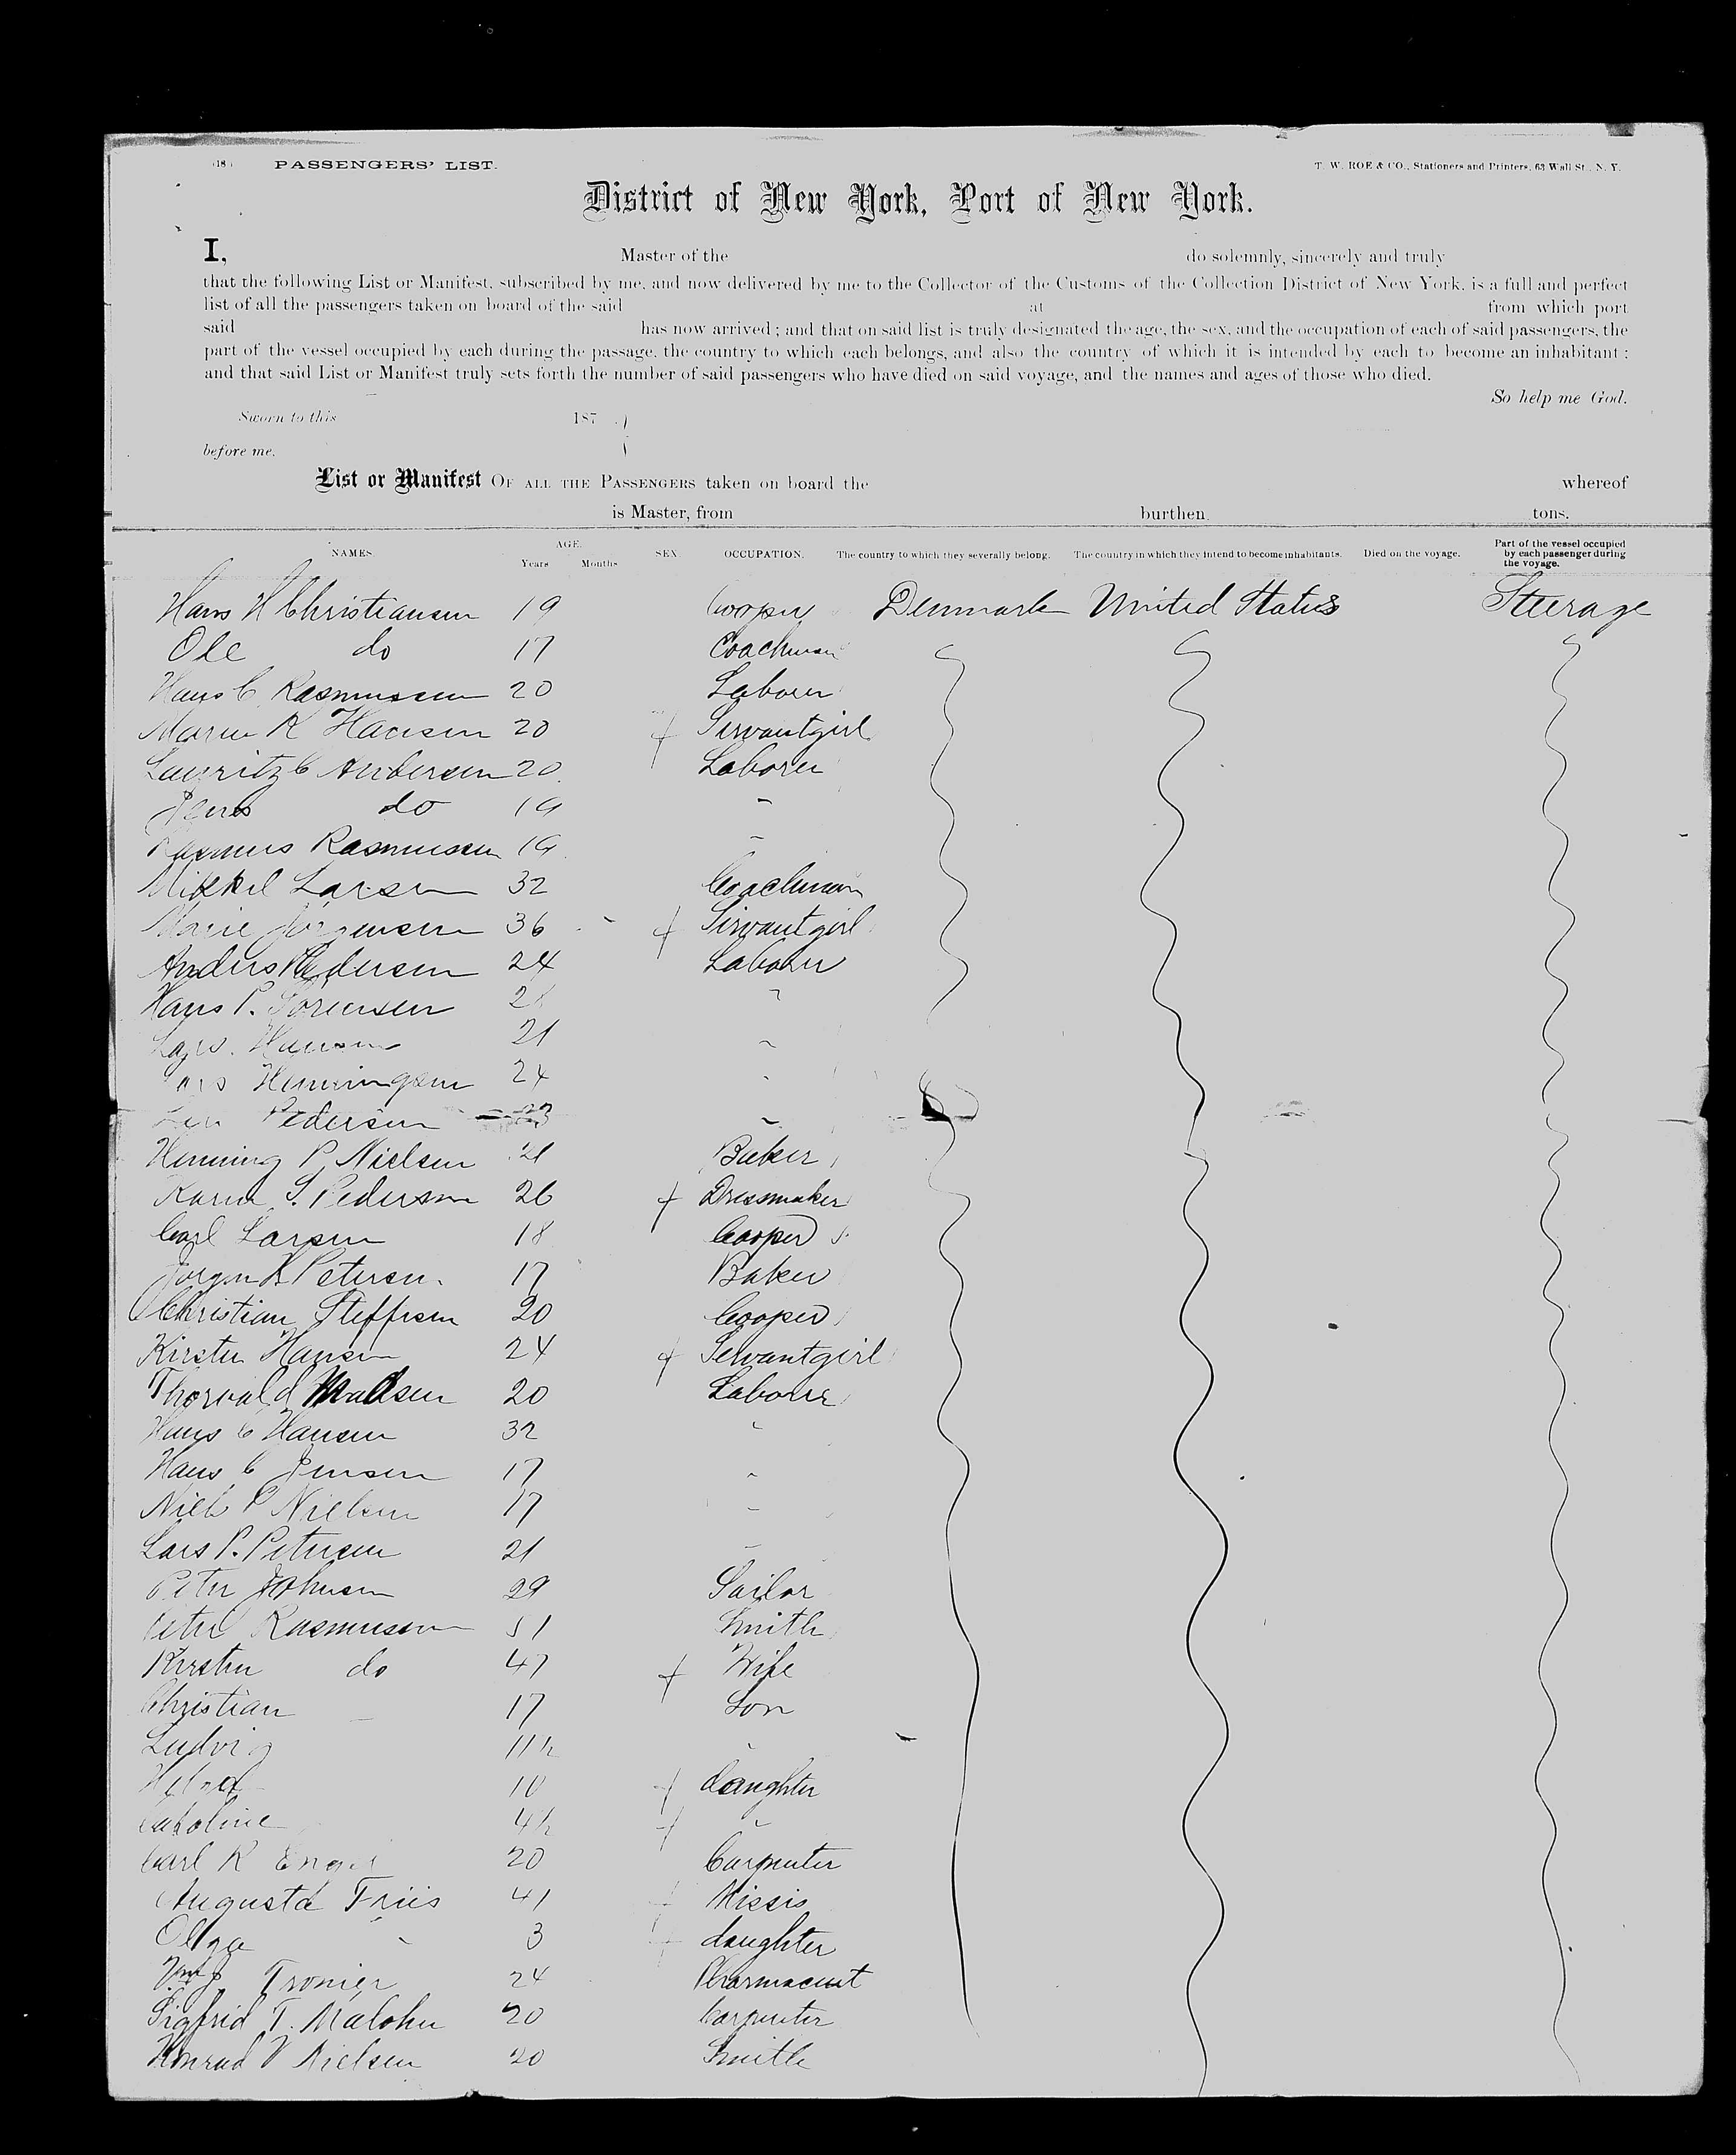 (18) PASSENGERS' LIST. T. W. ROE & CO., Stationers and Printers, 63 Wall St., N. Y.
District of New York, Port of New York.
I, Master of the do solemnly, sincerely and truly
that the following List or Manifest, subscribed by me, and now delivered by me to the Collector of the Customs of the Collection District of New York, is a full and perfect
list of all the passengers taken on board of the said at from which port
said has now arrived; and that on said list is truly designated the age, the sex, and the occupation of each of said passengers, the
part of the vessel occupied by each during the passage, the country to which each belongs, and also the country of which it is intended by each to become an inhabitant;
and that said List or Manifest truly sets forth the number of said passengers who have died on said voyage, and the names and ages of those who died.
So help me God.
Sworn to this 187
before me.
List or Manifest OF ALL THE PASSENGERS taken on board the whereof
is Master, from burthen. tons.
NAMES. AGE. Years Months SEX. OCCUPATION. The country to which they severally belong. The country in which they intend to become inhabitants. Died on the voyage. Part of the vessel occupied by each passenger during the voyage.
Hans H Christiansen 19 Cooper Denmark United States Steerage
Ole do 17 Coachman
Hans C Rasmussen 20 Laborer
Maren K Hansen 20 f Servantgirl
Lauritz C Andersen 20 Laborer
Jens do 19 "
Rasmus Rasmussen 19 "
Mikkel Larsen 32 Coachman
Marie Jörgensen 36 f Servantgirl
Anders Pedersen 24 Laborer
Hans P. Sörensen "
Lars Hansen 21 "
Henningsen 24 "
Pedersen 23 "
Henning P Nielsen 21 Baker
Karen S. Pedersen 26 f Dressmaker
Carl Larsen 18 Cooper
Jörgen H Petersen 17 Baker
Christian Steffsen 20 Cooper
Kirsten Hansen 24 f Servantgirl
Thorvald Madsen 20 Laborer
Hans C Hansen 32 "
Hans C Jensen 17 "
Niels P Nielsen 17 "
Lars P. Petersen 21 "
Peter Johnsen 29 Sailor
Peter Rasmussen 51 Smith
Kirsten do 47 f Wife
Christian " 17 Son
Ludvig 11½ "
10 f daughter
Caroline 4½ f "
Carl R Engel 20 Carpenter
Augusta Friis 41 f Missis
Olga " 3 f daughter
Tronier 24 Pharmaceut
Sigfrid T. Malohn 20 Carpenter
Konrad V Nielsen 20 Smith